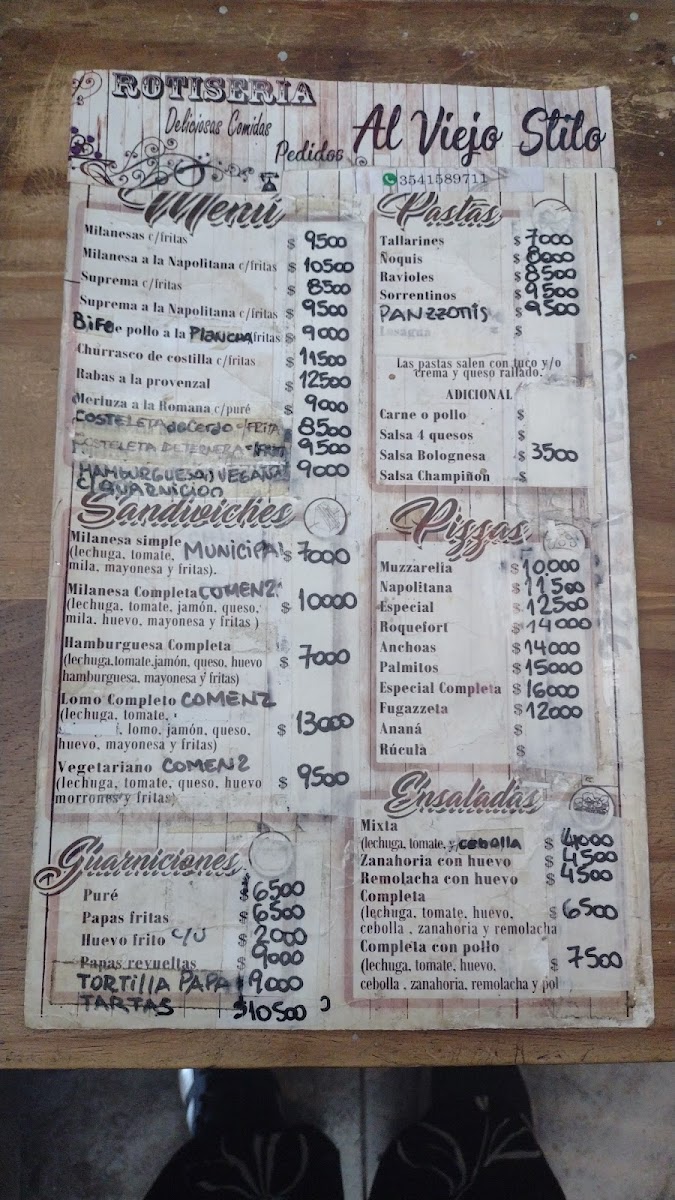 ROTISERIA
Deliciosas Comidas
Pedidos
Al Viejo Stilo
3541589711
Menú
Milanesas c/fritas $ 9500
Milanesa a la Napolitana c/fritas $ 10500
Suprema c/fritas $ 8500
Suprema a la Napolitana c/fritas $ 9500
BiFe e pollo a la PLANCHA fritas $ 9000
Churrasco de costilla c/fritas $ 11500
Rabas a la provenzal $ 12500
Merluza a la Romana c/puré $ 9000
COSTELETA de Cerdo c/FRITA 8500
COSTELETA DE TERNERA c/FRIT 9500
HAMBURGUESAS VEGANA 9000
C/GUARNICION
Sandwiches
Milanesa simple MUNICIPAL
(lechuga, tomate, $ 7000
mila, mayonesa y fritas).
Milanesa Completa COMENZ
(lechuga, tomate, jamón, queso, $ 10000
mila, huevo, mayonesa y fritas )
Hamburguesa Completa
(lechuga,tomate,jamón, queso, huevo $ 7000
hamburguesa, mayonesa y fritas)
Lomo Completo COMENZ
(lechuga, tomate,
, lomo, jamón, queso, $ 13000
huevo, mayonesa y fritas)
Vegetariano COMENZ
(lechuga, tomate, queso, huevo $ 9500
morrones y fritas)
Guarniciones
Puré $ 6500
Papas fritas $ 6500
Huevo frito c/u $ 2000
Papas revueltas $ 9000
TORTILLA PAPA 9000
TARTAS $10500
Pastas
Tallarines $ 7000
Ñoquis $ 8000
Ravioles $ 8500
Sorrentinos $ 9500
PANZZOTTIS $ 9500
Losagna $
Las pastas salen con tuco y/o
crema y queso rallado.
ADICIONAL
Carne o pollo $
Salsa 4 quesos $
Salsa Bolognesa $ 3500
Salsa Champiñon $
Pizzas
Muzzarella $ 10.000
Napolitana $ 11500
Especial $ 12500
Roquefort $ 14000
Anchoas $ 14000
Palmitos $ 15000
Especial Completa $ 16000
Fugazzeta $ 12000
Ananá $
Rúcula $
Ensaladas
Mixta
(lechuga, tomate, y cebolla $ 4000
Zanahoria con huevo $ 4500
Remolacha con huevo $ 4500
Completa
(lechuga, tomate, huevo, $ 6500
cebolla , zanahoria y remolacha
Completa con pollo
(lechuga, tomate, huevo, $ 7500
cebolla , zanahoria, remolacha y pol